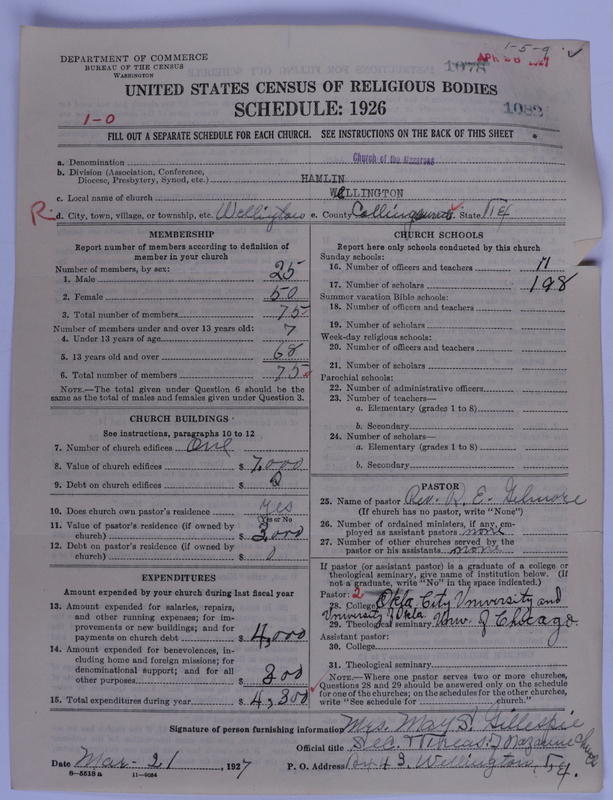 1-5-9 ✓
DEPARTMENT OF COMMERCE
BUREAU OF THE CENSUS
WASHINGTON
APR 28 1927
1078
UNITED STATES CENSUS OF RELIGIOUS BODIES
SCHEDULE: 1926
1-0
1082
FILL OUT A SEPARATE SCHEDULE FOR EACH CHURCH. SEE INSTRUCTIONS ON THE BACK OF THIS SHEET
a. Denomination Church of the Nazarene
b. Division (Association, Conference, Diocese, Presbytery, Synod, etc.) HAMLIN
c. Local name of church WELLINGTON
R d. City, town, village, or township, etc. Wellington e. County Collingsworth State Tex
MEMBERSHIP
Report number of members according to definition of member in your church
Number of members, by sex:
1. Male 25
2. Female 50
3. Total number of members 75
Number of members under and over 13 years old:
4. Under 13 years of age 7
5. 13 years old and over 68
6. Total number of members 75
NOTE.—The total given under Question 6 should be the same as the total of males and females given under Question 3.
CHURCH BUILDINGS
See instructions, paragraphs 10 to 12
7. Number of church edifices One
8. Value of church edifices $ 7,000
9. Debt on church edifices $ 0
10. Does church own pastor's residence yes
(Yes or No)
11. Value of pastor's residence (if owned by church) $ 3,000
12. Debt on pastor's residence (if owned by church) $ 0
EXPENDITURES
Amount expended by your church during last fiscal year
13. Amount expended for salaries, repairs, and other running expenses; for improvements or new buildings; and for payments on church debt $ 4,000
14. Amount expended for benevolences, including home and foreign missions; for denominational support; and for all other purposes $ 300
15. Total expenditures during year $ 4,300
CHURCH SCHOOLS
Report here only schools conducted by this church
Sunday schools:
16. Number of officers and teachers 11
17. Number of scholars 198
Summer vacation Bible schools:
18. Number of officers and teachers
19. Number of scholars
Week-day religious schools:
20. Number of officers and teachers
21. Number of scholars
Parochial schools:
22. Number of administrative officers
23. Number of teachers—
a. Elementary (grades 1 to 8)
b. Secondary
24. Number of scholars—
a. Elementary (grades 1 to 8)
b. Secondary
PASTOR
25. Name of pastor Rev. R. E. Gilmore
(If church has no pastor, write "None")
26. Number of ordained ministers, if any, employed as assistant pastors none
27. Number of other churches served by the pastor or his assistants none
If pastor (or assistant pastor) is a graduate of a college or theological seminary, give name of institution below. (If not a graduate, write "No" in the space indicated.)
Pastor: 2
28. College Okla. City University and University of Okla.
29. Theological seminary Univ. of Chicago
Assistant pastor:
30. College
31. Theological seminary
NOTE.—Where one pastor serves two or more churches, Questions 28 and 29 should be answered only on the schedule for one of the churches; on the schedules for the other churches, write "See schedule for church."
Signature of person furnishing information Mrs. May S. Gillespie
Official title Sec. + Treas. of Nazarene Church
Date Mar - 21, 1927 P. O. Address Bx 43, Wellington, Tex.
8—5518 a 11—9084